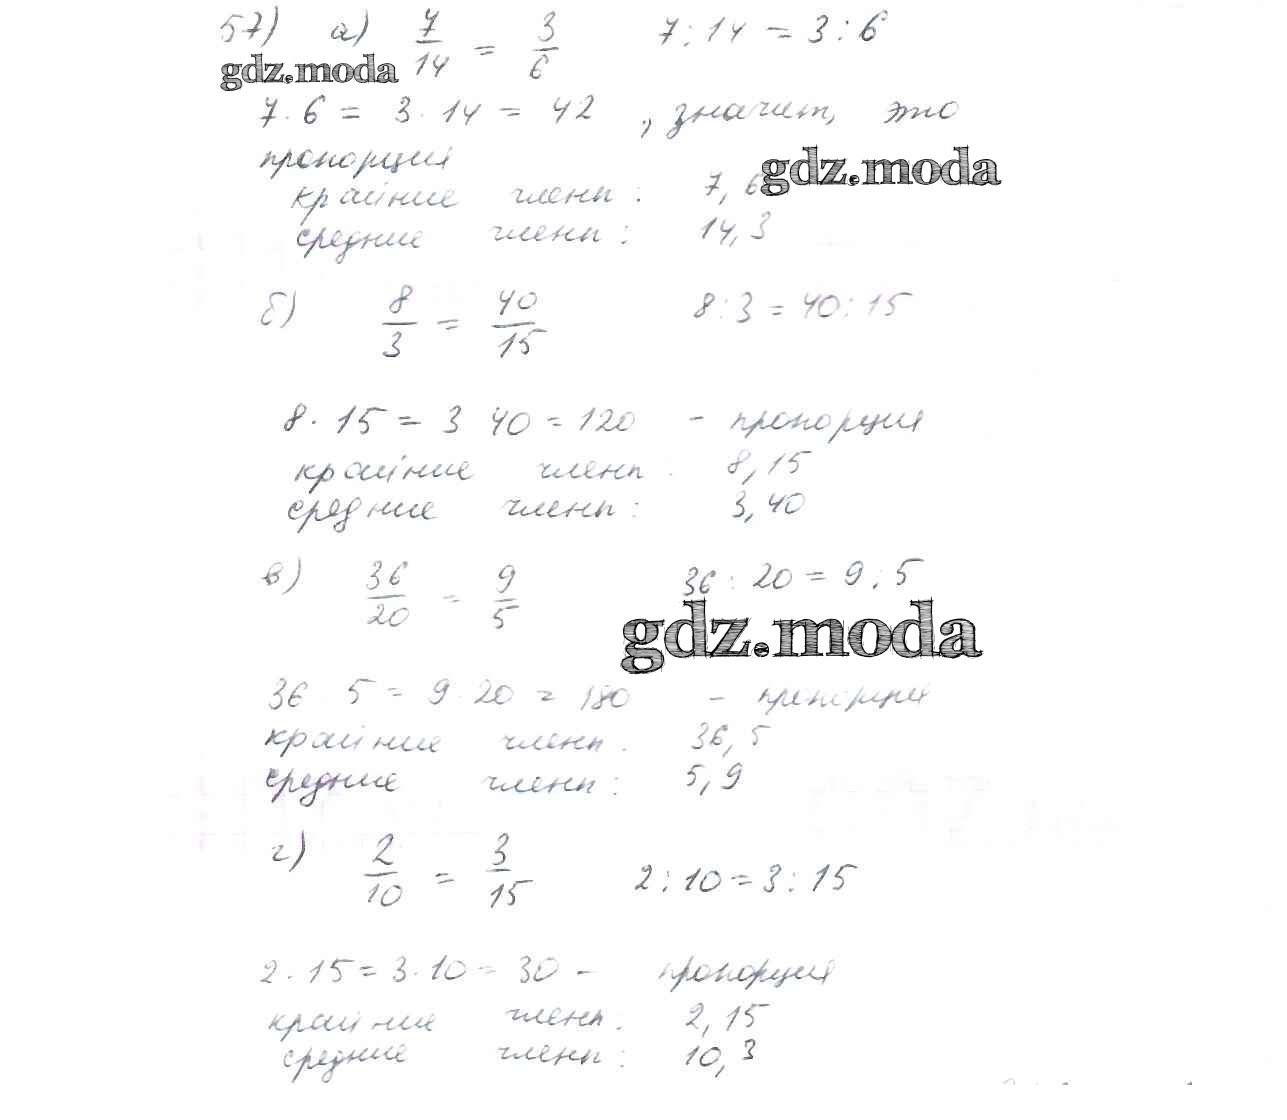 57) а) 7/14 = 3/6 7 : 14 = 3 : 6
gdz.moda
7 · 6 = 3 · 14 = 42 , значит, это
пропорция
gdz.moda
крайние члены : 7, 6
средние члены : 14, 3
б) 8/3 = 40/15 8 : 3 = 40 : 15
8 · 15 = 3 40 = 120 - пропорция
крайние члены : 8, 15
средние члены : 3, 40
в) 36/20 = 9/5 36 : 20 = 9 : 5
gdz.moda
36 · 5 = 9 · 20 = 180 - пропорция
крайние члены : 36, 5
средние члены : 5, 9
г) 2/10 = 3/15 2 : 10 = 3 : 15
2 · 15 = 3 · 10 = 30 - пропорция
крайние члены : 2, 15
средние члены : 10, 3